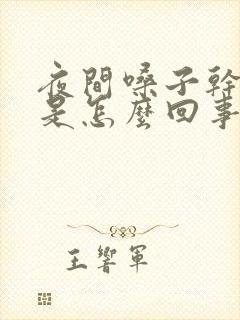 夜間嗓子幹
是怎麼回事
王響軍